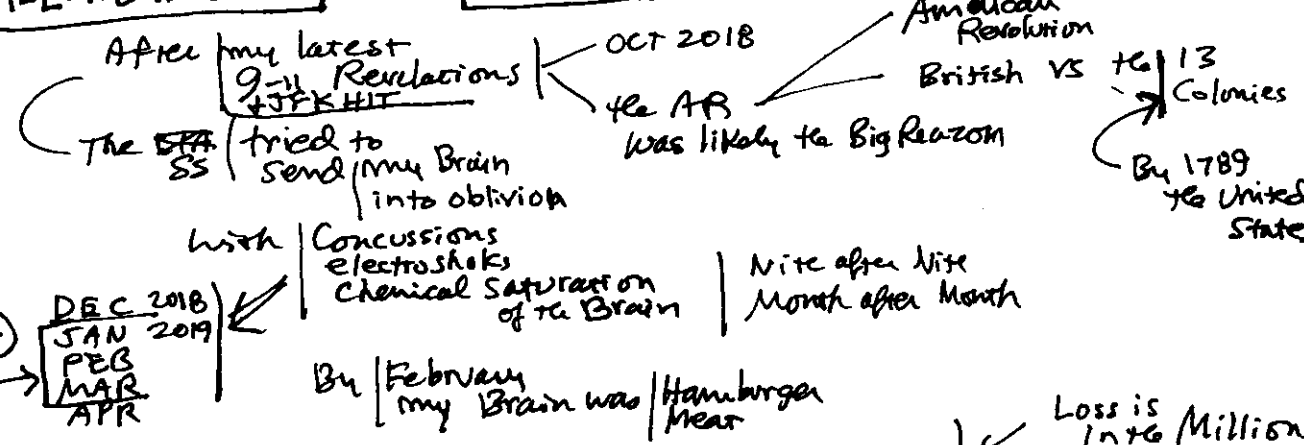 After my latest
9-11 Revelations
+JFK HIT
OCT 2018
the AR
was likely the Big Reazom
American
Revolution
British vs the 13
Colonies
By 1789
the United
State
The SS
tried to
send my Brain
into oblivion
with Concussions
electroshoks
Chemical Saturation
of the Brain
Nite after Nite
Month after Month
DEC 2018
JAN 2019
FEB
MAR
APR
By February
my Brain was Hamburger
Meat
Loss is
In the Million